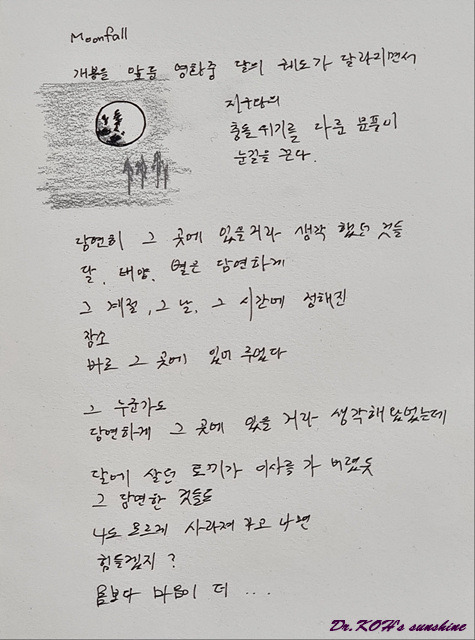 Moonfall
개봉을 앞둔 영화중 달의 궤도가 달라지면서
지구와의
충돌 위기를 다룬 문폴이
눈길을 끈다.
당연히 그 곳에 있을거라 생각 했던 것들
달, 태양, 별은 당연하게
그 계절, 그 날, 그 시간에 정해진
장소
바로 그 곳에 있어 주었다
그 누군가도
당연하게 그 곳에 있을 거라 생각해 왔었는데
달에 살던 토끼가 이사를 가 버렸듯
그 당연한 것들도
나도 모르게 사라져 가고 나면
힘들겠지 ?
몸보다 마음이 더 ...
Dr.KOH's sunshine